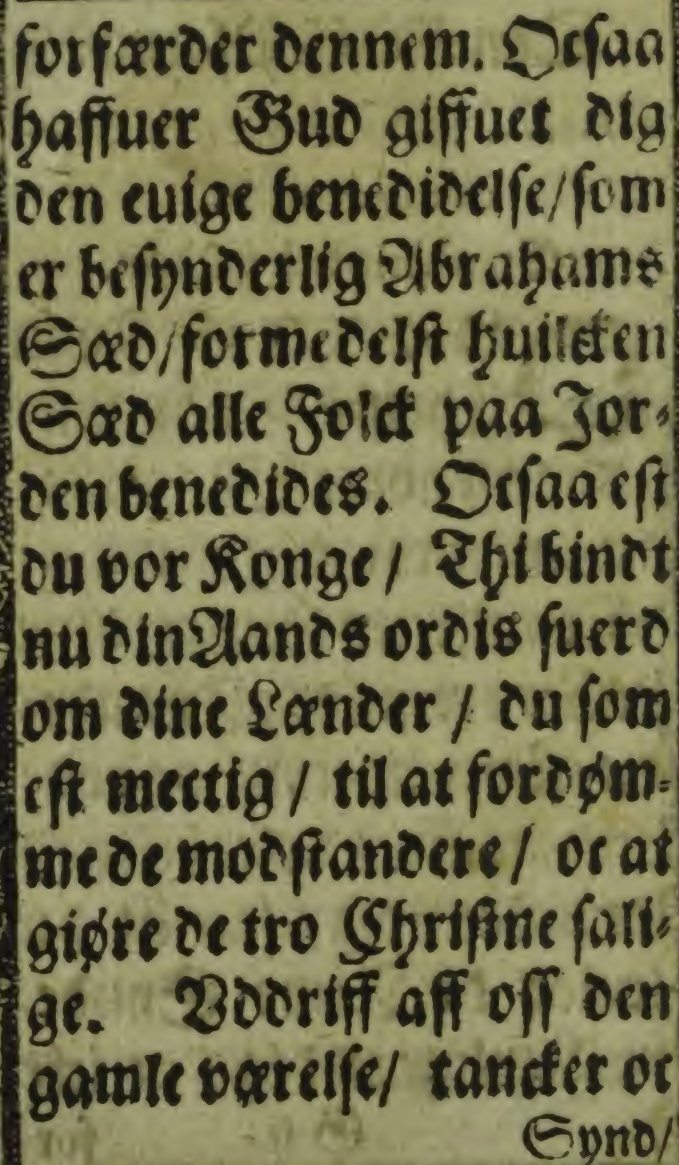 forfærder dennem. Ocsaa
haffuer Gud giffuet dig
den euige benedidelse/som
er besynderlig Abrahams
Sæd/formedelst huilcken
Sæd alle Folck paa Jor-
den benedides. Ocsaa est
du vor Konge/ Thi bindt
nu din Aands ordis suerd
om dine Lænder / du som
est mectig / til at fordøm-
me de modstandere/ oc at
giøre de tro Christne sali-
ge. Vddriff aff oss den
gamle værelse/ tancker oc
Synd/